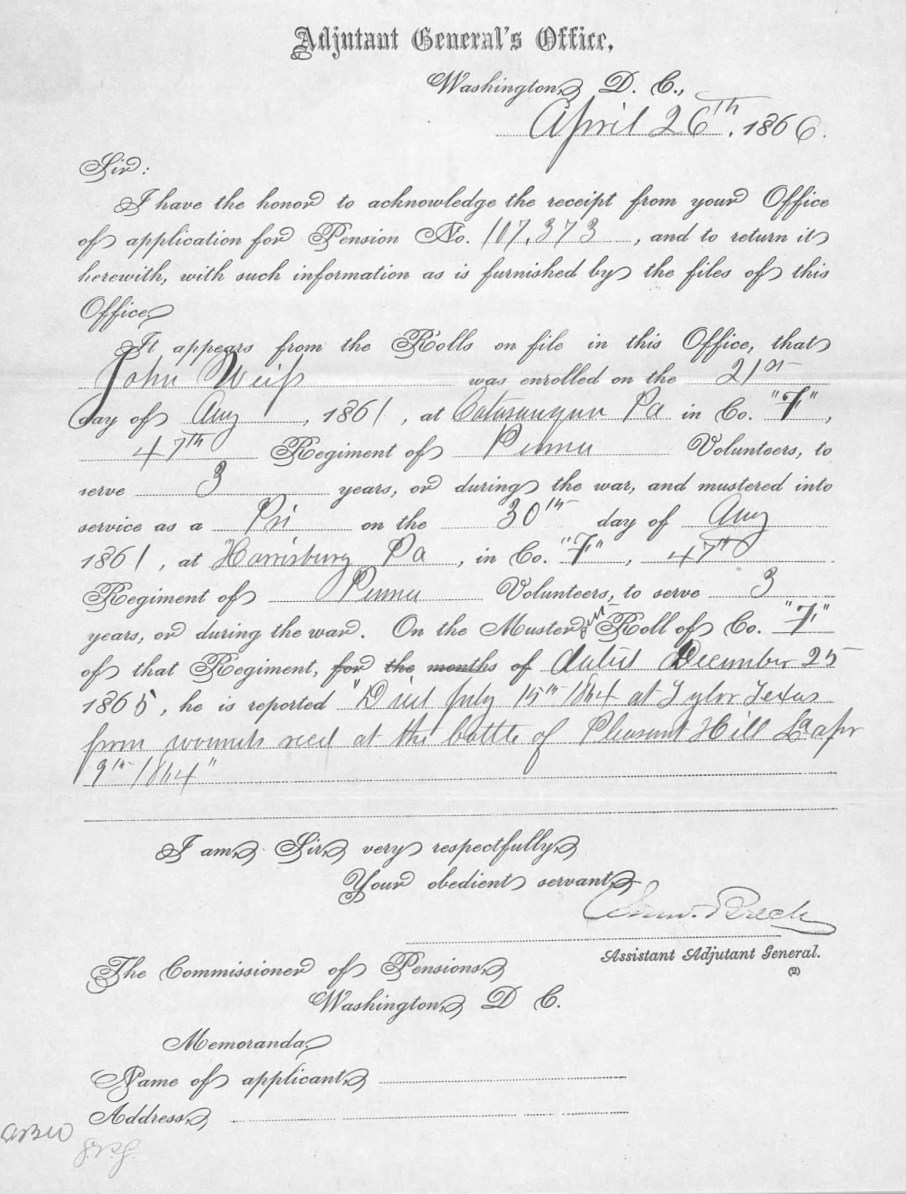 Adjutant General's Office,
Washington, D. C.,
April 26th, 1866.
Sir:
I have the honor to acknowledge the receipt from your Office
of application for Pension No. 107,373, and to return it
herewith, with such information as is furnished by the files of this
Office.
It appears from the Rolls on file in this Office, that
John Weiss was enrolled on the 21st
day of Aug, 1861, at Catasauqua Pa in Co. "F",
47th Regiment of Penna Volunteers, to
serve 3 years, or during the war, and mustered into
service as a Pri on the 30th day of Aug
1861, at Harrisburg Pa, in Co. "F", 47th
Regiment of Penna Volunteers, to serve 3
years, or during the war. On the Muster out Roll of Co. "F"
of that Regiment, for the months of dated December 25
1865, he is reported "Died July 15th 1864 at Tylor Texas
from wounds recd at the battle of Pleasant Hill La apr
9th 1864"
I am, Sir, very respectfully,
Your obedient servant,
Saml. Breck
Assistant Adjutant General.
(2)
The Commissioner of Pensions,
Washington, D C.
Memoranda,
Name of applicant,
Address,